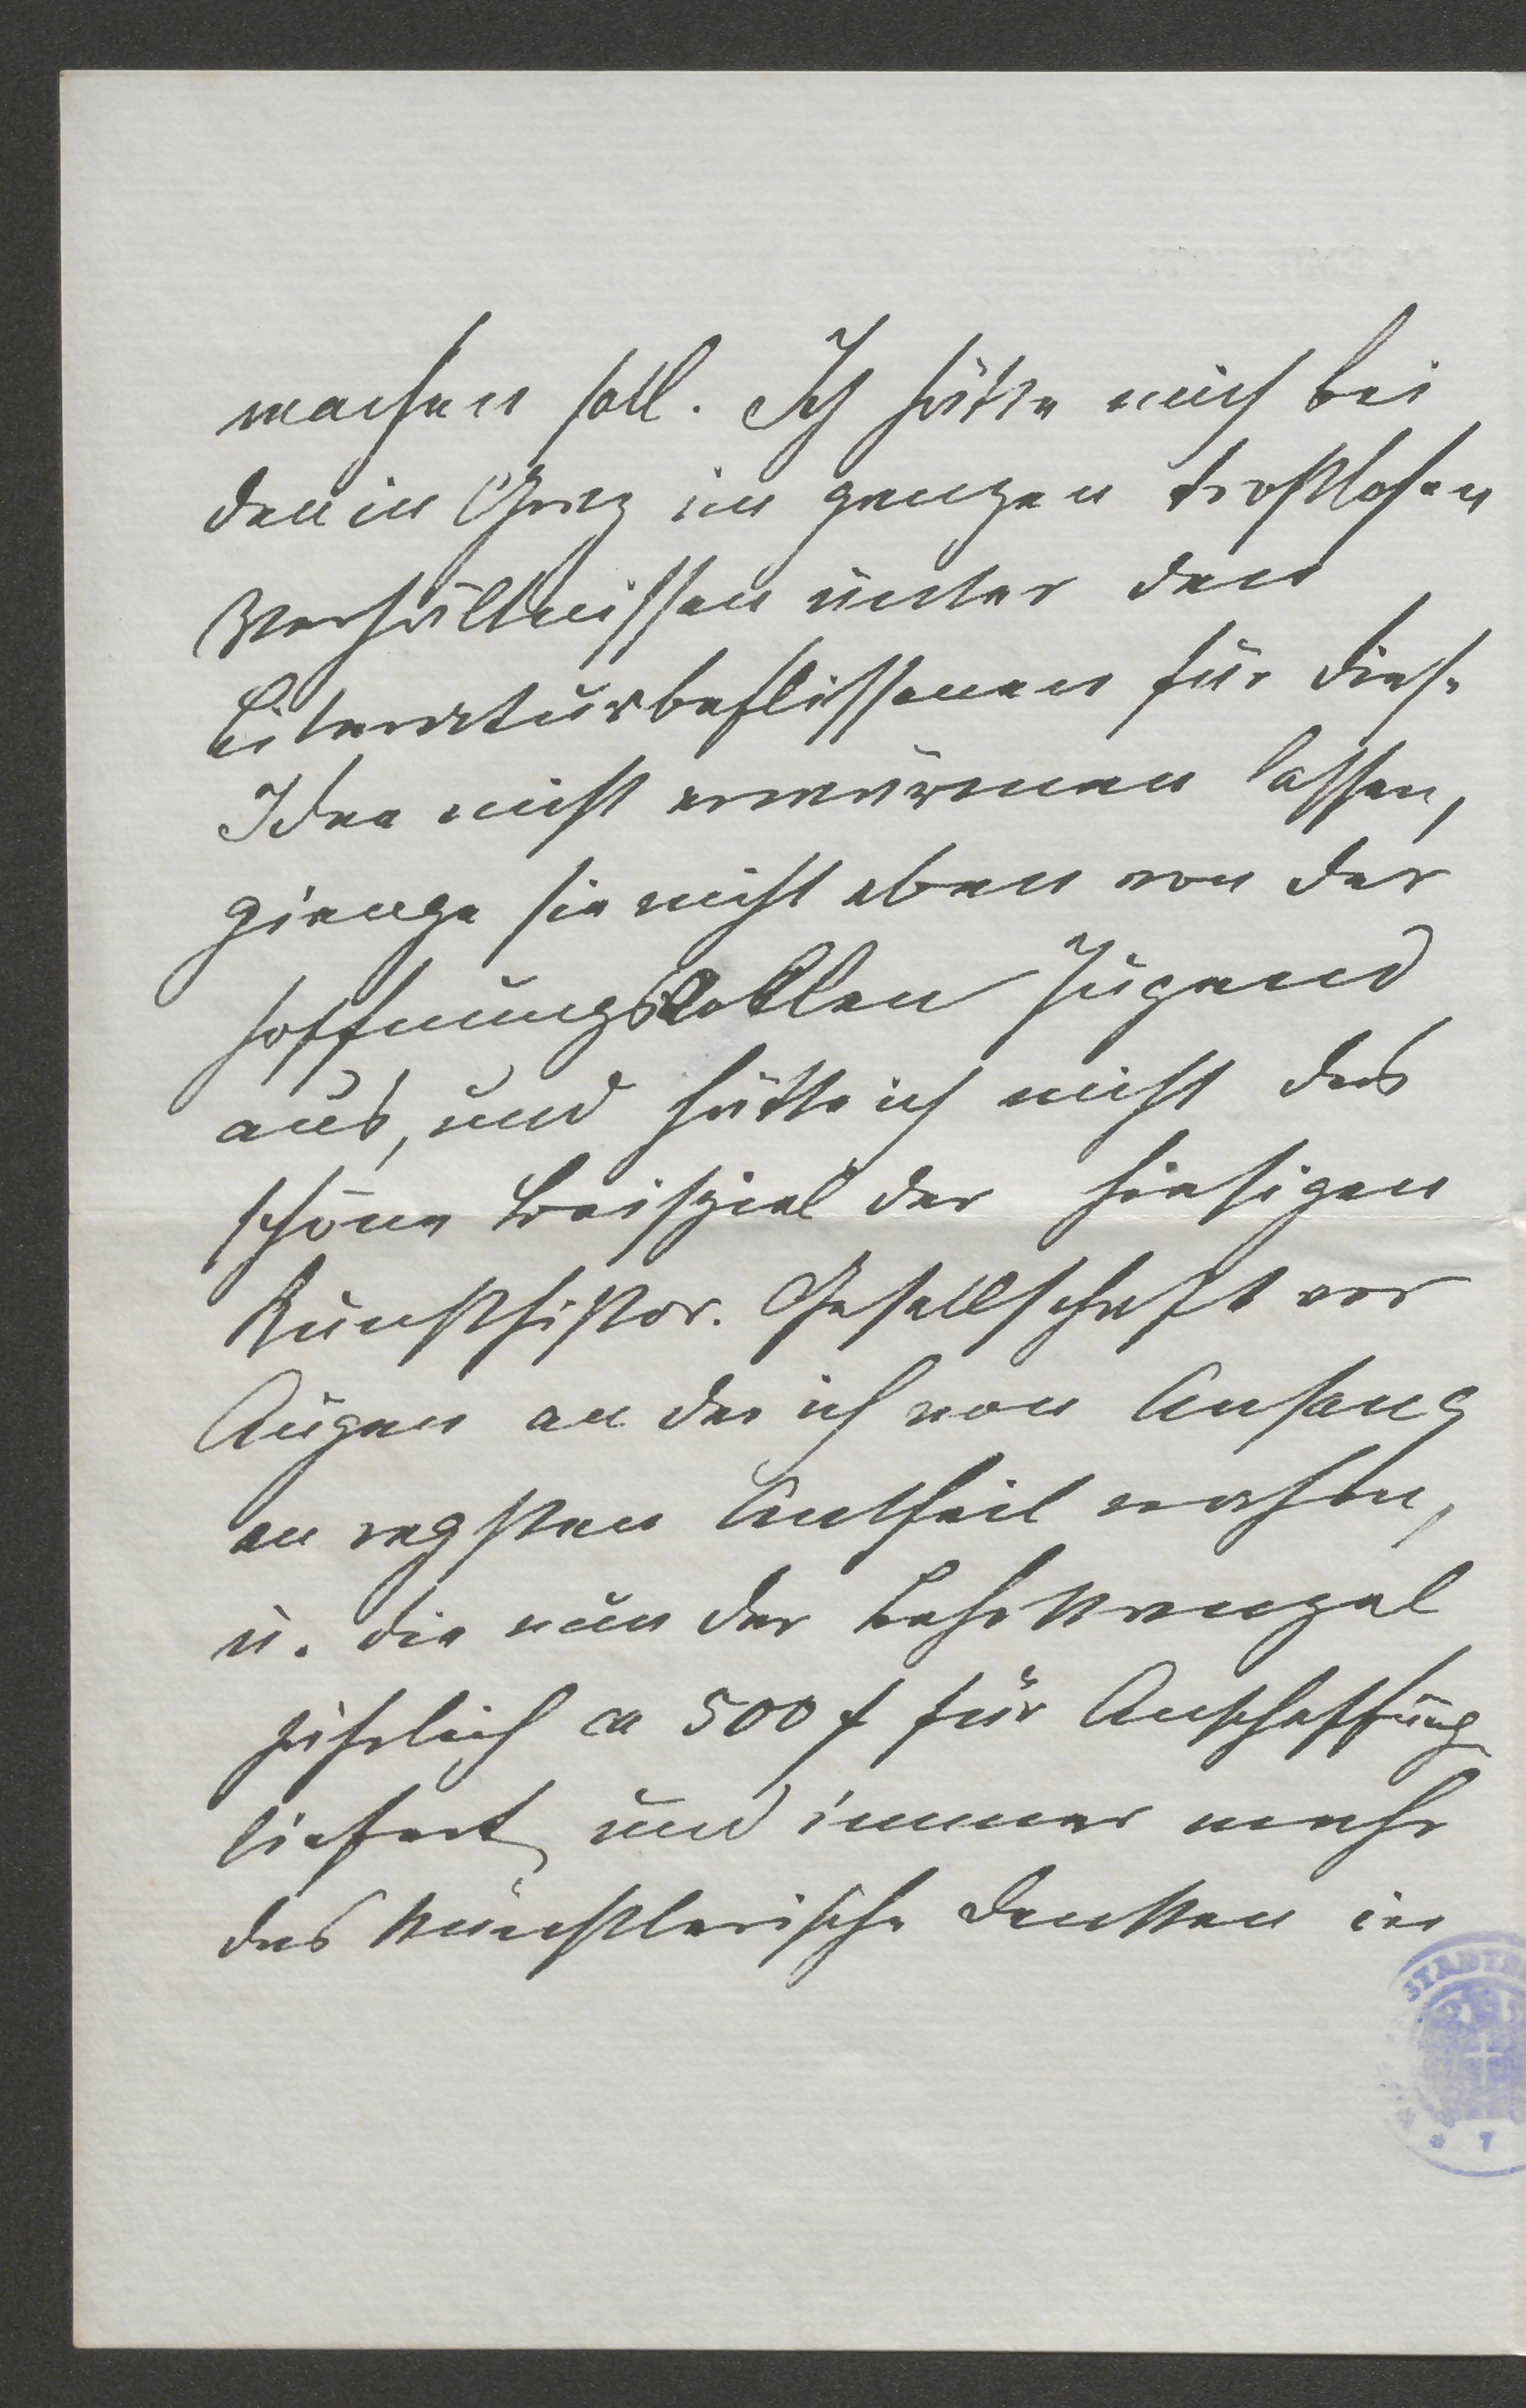 machen soll. Ich hätte mich bei
den in Graz im ganzen trostlosen
Verhältnissen unter den
Literaturbeflissenen für diese
Idee nicht erwärmen lassen,
gienge sie nicht eben von der
hoffnungsvollen Jugend
aus, und hätte ich nicht das
schöne Beispiel der hiesigen
Kunsthistor. Gesellschaft vor
Augen an der ich von Anfang
an regsten Antheil nahm,
u. die nun der Lehrkanzel
jährlich ca 500 f für Anschaffung
liefert, und immer mehr
das künstlerische Denken in